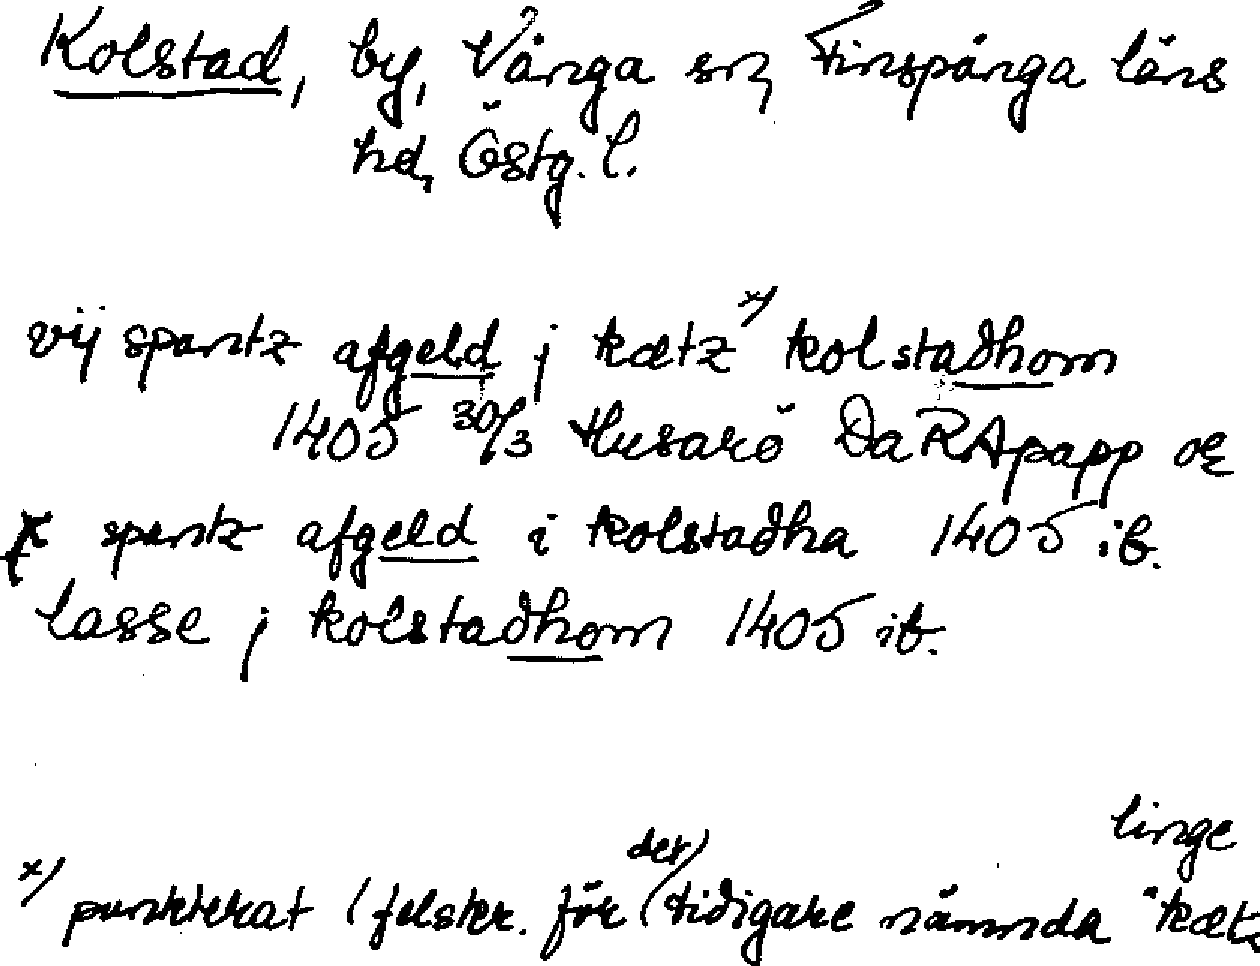 Kolstad, by, Vånga sn, Finspånga läns
hd, Östg. l.
vij spantz afgeld j kætz x) kolstadhom
1405 30/3 Husarö Da RApapp or
x spantz afgeld i kolstadha 1405 ib.
lasse j kolstadhom 1405 ib.
linge
x) punkterat (felskr. för (det) tidigare nämnda kætz